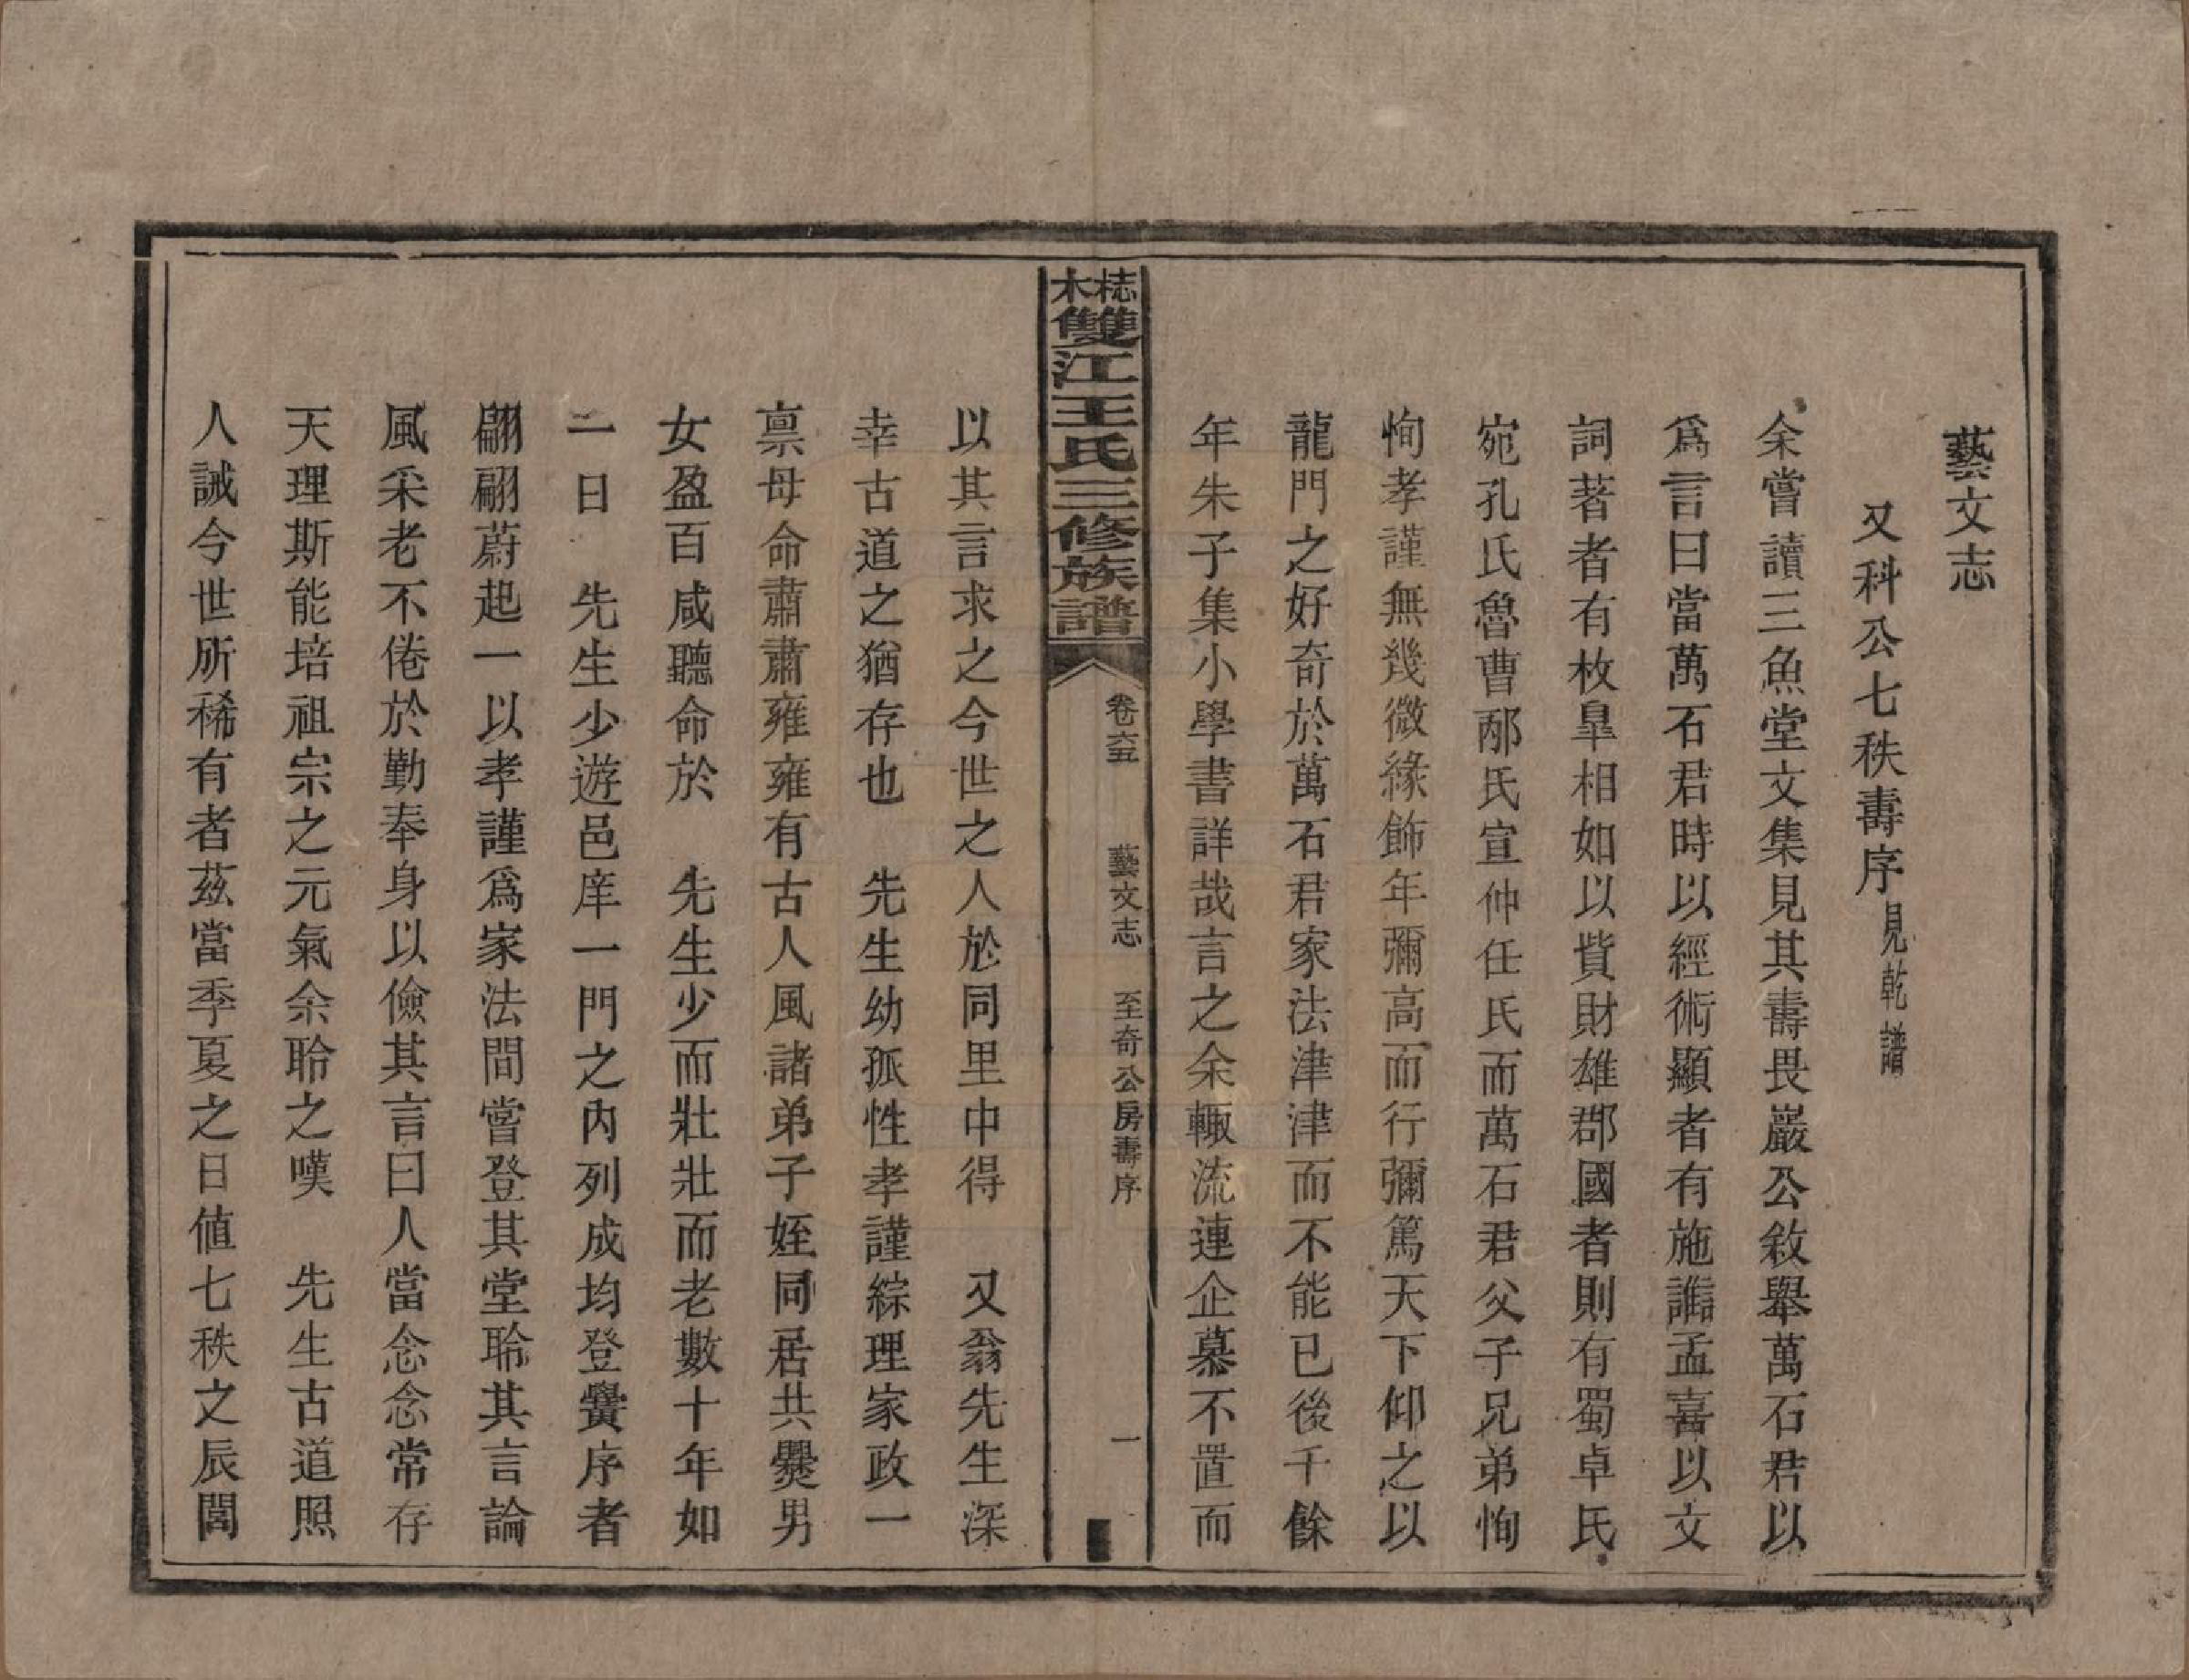 藝文志
又科公七秩壽序見乾譜
余嘗讀三魚堂文集見其壽畏巖公敘舉萬石君以
爲言曰當萬石君時以經術顯者有施讎孟喜以文
詞著者有枚臯相如以貲財雄郡國者則有蜀卓氏
宛孔氏魯曹邴氏宣仲任氏而萬石君父子兄弟恂
恂孝謹無幾微緣飾年彌高而行彌篤天下仰之以
龍門之好奇於萬石君家法津津而不能已後千餘
年朱子集小學書詳哉言之余輒流連企慕不置而
梽木雙江王氏三修族譜 卷六五 藝文志 至奇公房壽序 一
以其言求之今世之人於同里中得 又翁先生深
幸古道之猶存也 先生幼孤性孝謹綜理家政一
禀母命肅肅雍雍有古人風諸弟子姪同居共爨男
女盈百咸聽命於 先生少而壯壯而老數十年如
一日 先生少遊邑庠一門之內列成均登黌序者
翩翩蔚起一以孝謹爲家法間嘗登其堂聆其言論
風采老不倦於勤奉身以儉其言曰人當念念常存
天理斯能培祖宗之元氣余聆之嘆 先生古道照
人誠今世所稀有者茲當季夏之日値七秩之辰閤